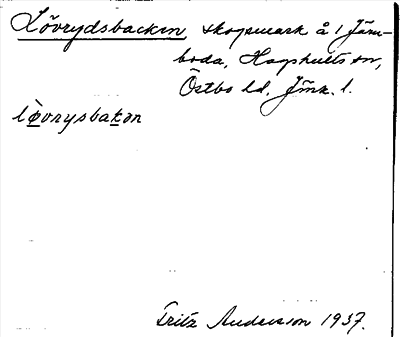 Lövrydsbacken skogsmark å 1 Järn-
boda, Hagshults sn,
Östbo hd. Jönk. l.
lø̀vrysbakən
Fritz Andersson 1937.